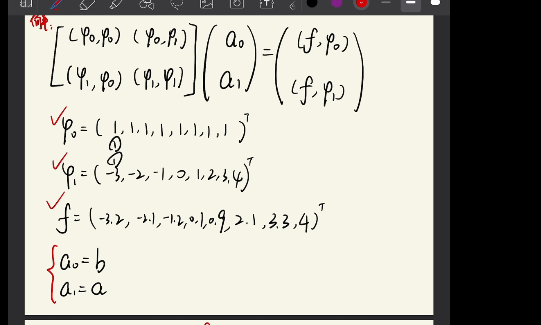 [(φ₀,φ₀) (φ₀,φ₁)] (a₀) = ((f,φ₀)
[(φ₁,φ₀) (φ₁,φ₁)] (a₁) (f,φ₁))
φ₀=(1,1,1,1,1,1,1,1)ᵀ
φ₁=(-3,-2,-1,0,1,2,3,4)ᵀ
f=(-3.2,-2.1,-1.2,0.1,0.9,2.1,3.3,4)ᵀ
a₀=b
a₁=a